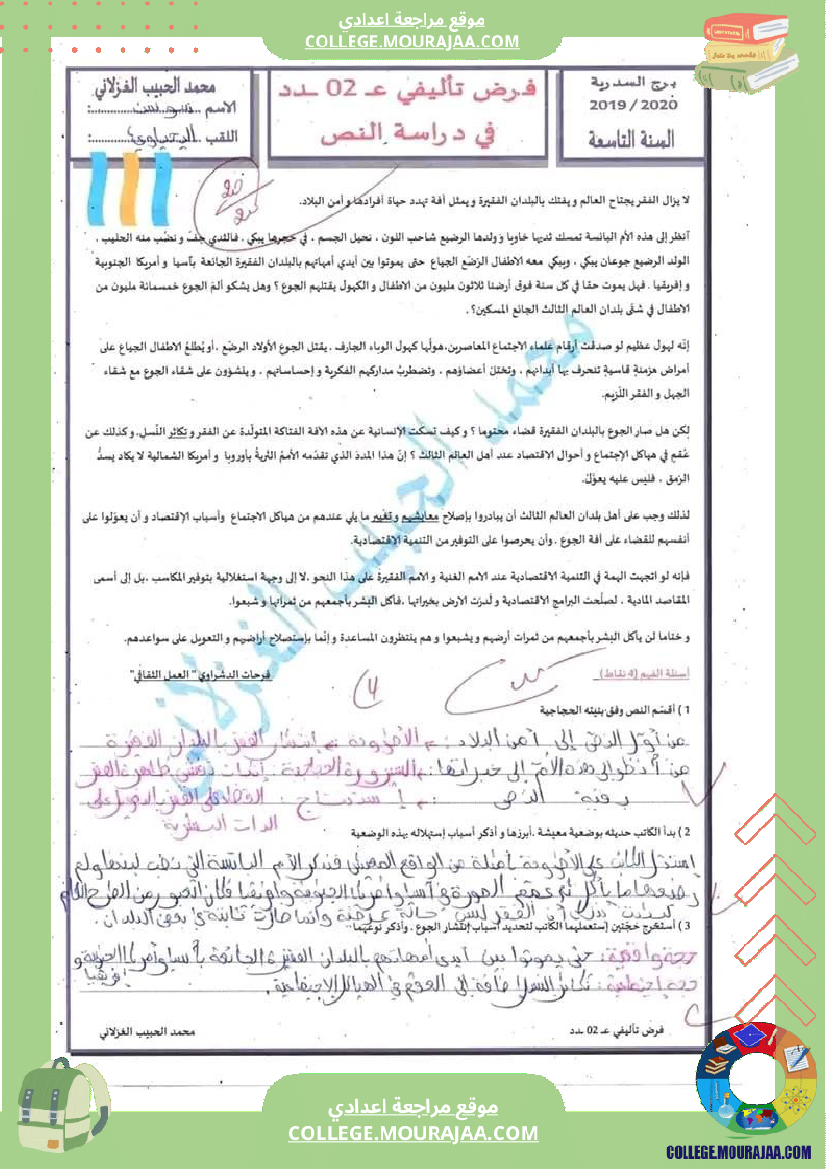 موقع مراجعة اعدادي
COLLEGE.MOURAJAA.COM
برج السدرية
2019/2020
السنة التاسعة
فرض تأليفي عـ 02 ـدد
في دراسة النص
محمد الحبيب الغزلاني
الاسم
اللقب
20/20
لا يزال الفقر يجتاح العالم ويفتك بالبلدان الفقيرة و يمثل آفة تهدد حياة أفرادها و أمن البلاد.
أنظر إلى هذه الأم البائسة تمسك ثديها خاويا و ولدها الرضيع شاحب اللون ، نحيل الجسم ، في حجرها يبكي . فالثدي جفّ و نضب منه الحليب .
الولد الرضيع جوعان يبكي ، ويبكي معه الاطفال الرّضع الجياع حتى يموتوا بين أيدي أمهاتهم بالبلدان الفقيرة الجائعة بآسيا و أمريكا الجنوبية
و إفريقيا . فهل يموت حقا في كل سنة فوق أرضنا ثلاثون مليون من الاطفال و الكهول يقتلهم الجوع ؟ وهل يشكو ألم الجوع خمسمائة مليون من
الاطفال في شتّى بلدان العالم الثالث الجائع المسكين؟ .
إنّه لهول عظيم لو صدقت أرقام علماء الاجتماع المعاصرين،هولها كهول الوباء الجارف . يقتل الجوع الأولاد الرضّع ، أو يُطلع الاطفال الجياع على
أمراض مزمنة قاسية تنحرف بها أبدانهم ، وتختلّ أعضاؤهم ، وتضطربُ مداركهم الفكرية و إحساساتهم ، وينشؤون على شقاء الجوع مع شقاء
الجهل و الفقر اللّزيم.
لكن هل صار الجوع بالبلدان الفقيرة قضاء محتوما ؟ و كيف تسكت الإنسانية عن هذه الآفة الفتاكة المتولّدة عن الفقر و تكاثر النّسل، وكذلك عن
عُقم في هياكل الإجتماع و أحوال الاقتصاد عند أهل العالم الثالث ؟ إنّ هذا المدد الذي تقدّمه الأممُ الثريةُ بأوروبا و أمريكا الشمالية لا يكاد يسدُّ
الرمق ، فليس عليه يعوّل.
لذلك وجب على أهل بلدان العالم الثالث أن يبادروا بإصلاح معايشهم و تغيير ما بلي عندهم من هياكل الاجتماع وأسباب الإقتصاد و أن يعوّلوا على
أنفسهم للقضاء على آفة الجوع . وأن يحرصوا على التوفير من التنمية الاقتصادية.
فإنه لو اتجهت الهمة في التنمية الاقتصادية عند الامم الغنية و الامم الفقيرة على هذا النحو ،لا إلى وجهة استغلالية بتوفير المكاسب ،بل إلى أسمى
المقاصد المادية . لصلُحت البرامج الاقتصادية و لدرّت الأرض بخيراتها ،فأكل البشر بأجمعهم من ثمراتها و شبعوا.
و ختاما لن يأكل البشر بأجمعهم من ثمرات أرضهم ويشبعوا و هم ينتظرون المساعدة و إنّما بإستصلاح أراضيهم و التعويل على سواعدهم.
فرحات الدشراوي" العمل الثقافي"
أسئلة الفهم (4 نقاط)
4
1 ) أقسّم النص وفق بنيته الحجاجية
من أوّل النص إلى أمن البلاد : الأطروحة : إنتشار الفقر بالبلدان الفقيرة
من أنظر إلى هذه الأم إلى خيراتها : السيرورة الحجاجية : إثبات تفشي ظاهرة الفقر
بقية النص : إستنتاج : القضاء على الفقر بالتعويل على
الذات البشرية
2 ) بدأ الكاتب حديثه بوضعية معيشة .أبرزها و أذكر أسباب إستهلاله بهذه الوضعية
استدل الكاتب على الأطروحة بأمثلة من الواقع المعيش فذكر الأم البائسة التي
3 ) أستخرج حجّتين إستعملهما الكاتب لتحديد أسباب إنتشار الجوع . وأذكر نوعيهما
حجة واقعية : حتى يموتوا بين أيدي أمهاتهم بالبلدان الفقيرة الجائعة بآسيا و أمريكا الجنوبية و
إفريقيا
حجة إجتماعية : تكاثر النسل إضافة إلى العقم في الهياكل الإجتماعية .
فرض تأليفي عـ 02 ـدد
محمد الحبيب الغزلاني
محمد الحبيب الغزلاني
موقع مراجعة اعدادي
COLLEGE.MOURAJAA.COM
COLLEGE.MOURAJAA.COM